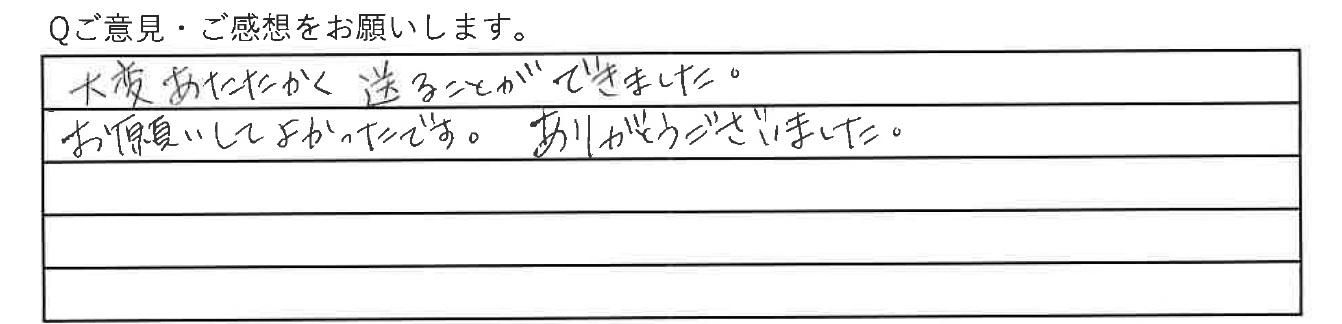 Qご意見・ご感想をお願いします。
大変あたたかく送ることができました。
お願いしてよかったです。ありがとうございました。